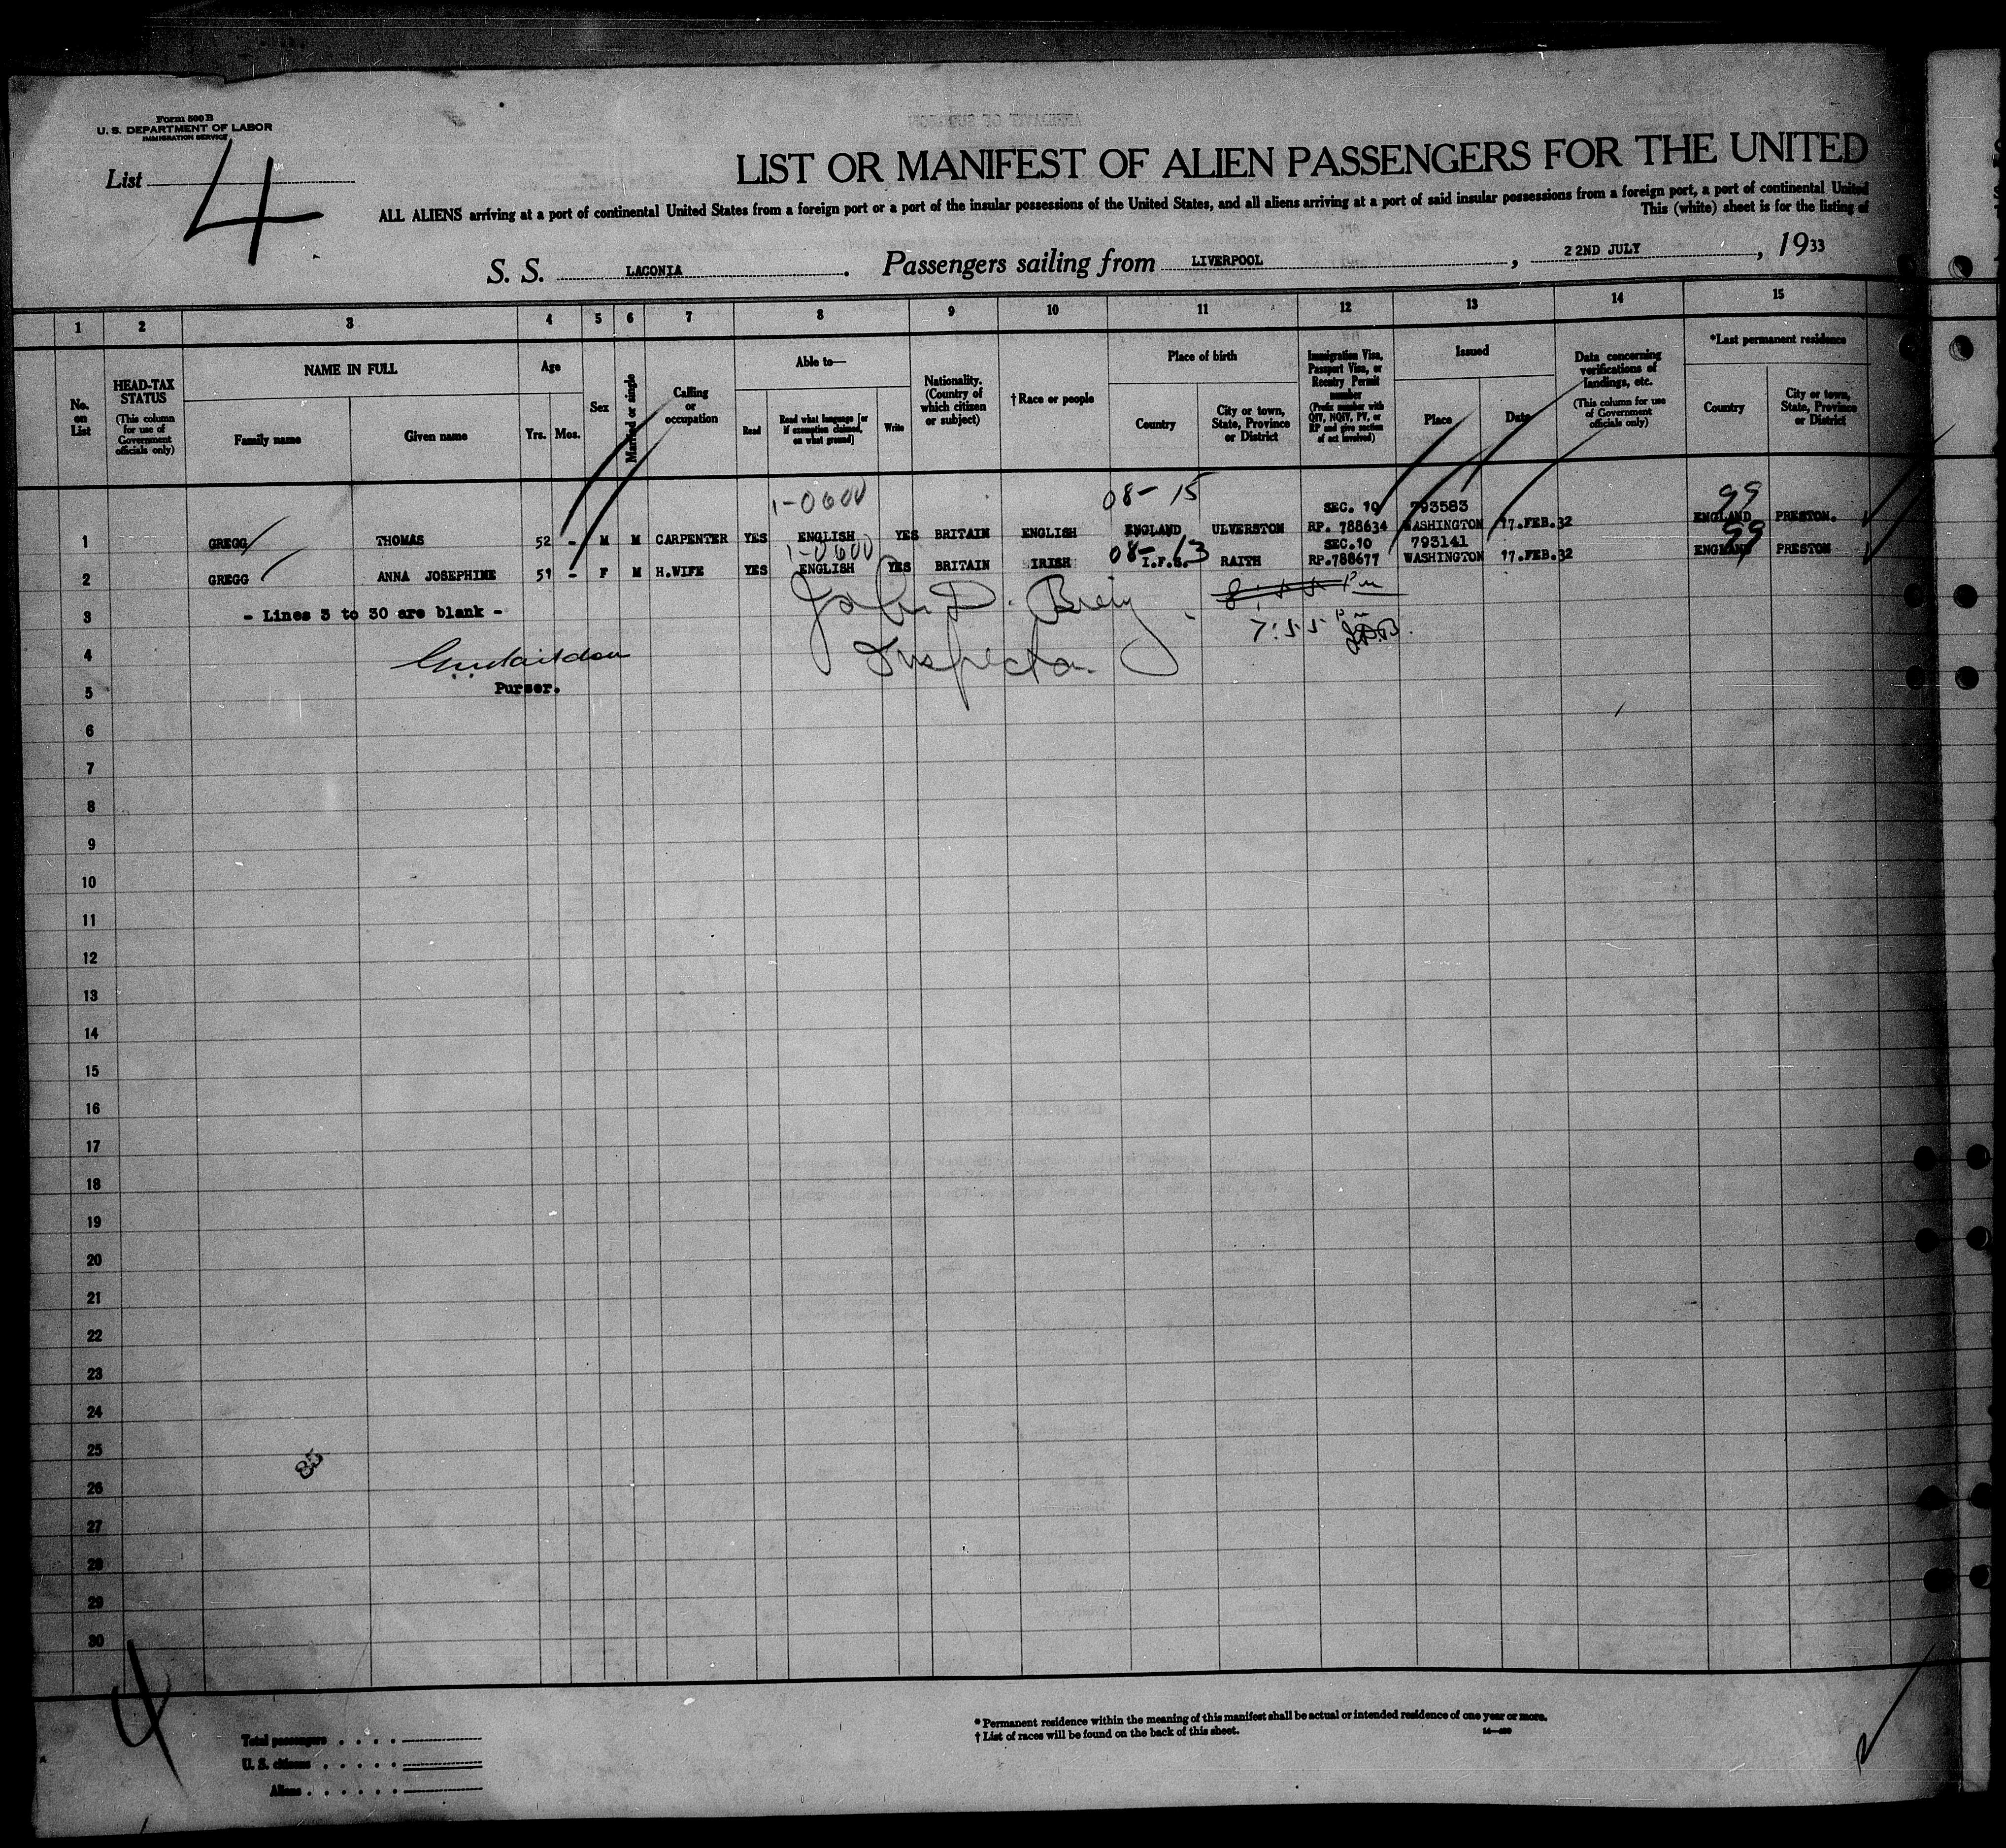 Form 500 B
U. S. DEPARTMENT OF LABOR
IMMIGRATION SERVICE
List 4
LIST OR MANIFEST OF ALIEN PASSENGERS FOR THE UNITED
ALL ALIENS arriving at a port of continental United States from a foreign port or a port of the insular possessions of the United States, and all aliens arriving at a port of said insular possessions from a foreign port, a port of continental United
This (white) sheet is for the listing of
S. S. LACONIA. Passengers sailing from LIVERPOOL, 22ND JULY, 1933
1 2 3 4 5 6 7 8 9 10 11 12 13 14 15
No. on List
HEAD-TAX STATUS
(This column for use of Government officials only)
NAME IN FULL
Family name
Given name
Age
Yrs. Mos.
Sex
Married or single
Calling or occupation
Able to—
Read
Read what language [or if exemption claimed, on what ground]
Write
Nationality. (Country of which citizen or subject)
† Race or people
Place of birth
Country
City or town, State, Province or District
Immigration Visa, Passport Visa, or Reentry Permit number
(Prefix number with QIV, NQIV, PV, or RP and give section of act involved)
Issued
Place
Date
Data concerning verifications of landings, etc.
(This column for use of Government officials only)
*Last permanent residence
Country
City or town, State, Province or District
1-0600 08-15 SEC. 10 793583 99
1 GREGG THOMAS 52 - M M CARPENTER YES ENGLISH YES BRITAIN ENGLISH ENGLAND ULVERSTON RP. 788634 WASHINGTON 17.FEB.32 ENGLAND PRESTON.
1-0600 08-13 SEC.10 793141 99
2 GREGG ANNA JOSEPHINE 51 - F M H.WIFE YES ENGLISH YES BRITAIN IRISH I.F.S. RAITH RP.788677 WASHINGTON 17.FEB.32 ENGLAND PRESTON
3 - Lines 3 to 30 are blank -
John D. Breig
7:55 Pm J.D.B.
4
Inspector
5 Purser.
6
7
8
9
10
11
12
13
14
15
16
17
18
19
20
21
22
23
24
25
85
26
27
28
29
30
4
Total passengers
U. S. citizens
Aliens
* Permanent residence within the meaning of this manifest shall be actual or intended residence of one year or more.
† List of races will be found on the back of this sheet.